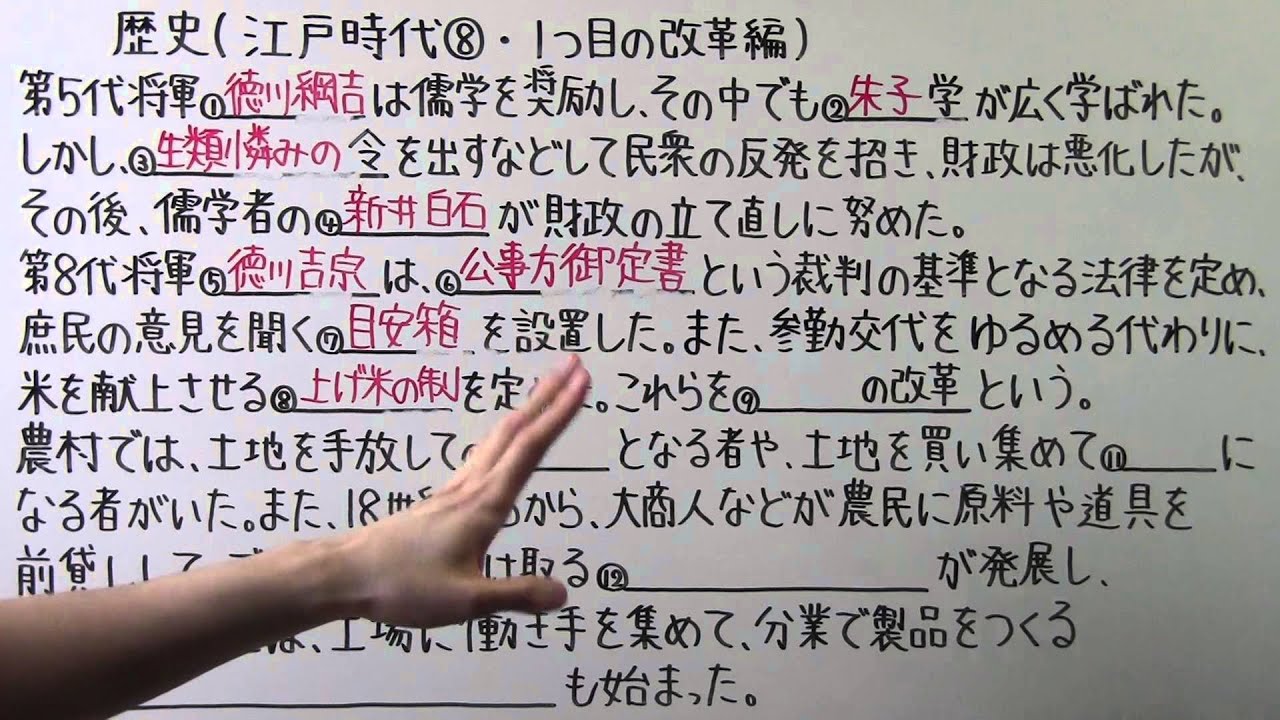 歴史(江戸時代⑧・1つ目の改革編)
第5代将軍①徳川綱吉は儒学を奨励し、その中でも②朱子学が広く学ばれた。
しかし、③生類憐みの令を出すなどして民衆の反発を招き、財政は悪化したが、
その後、儒学者の④新井白石が財政の立て直しに努めた。
第8代将軍⑤徳川吉宗は、⑥公事方御定書という裁判の基準となる法律を定め、
庶民の意見を聞く⑦目安箱を設置した。また、参勤交代をゆるめる代わりに、
米を献上させる⑧上げ米の制を定 。これらを⑨ の改革という。
農村では、土地を手放して となる者や、土地を買い集めて⑪ に
なる者がいた。また、18世 から、大商人などが農民に原料や道具を
前貸しして 取る⑫ が発展し、
は、工場に働き手を集めて、分業で製品をつくる
も始まった。